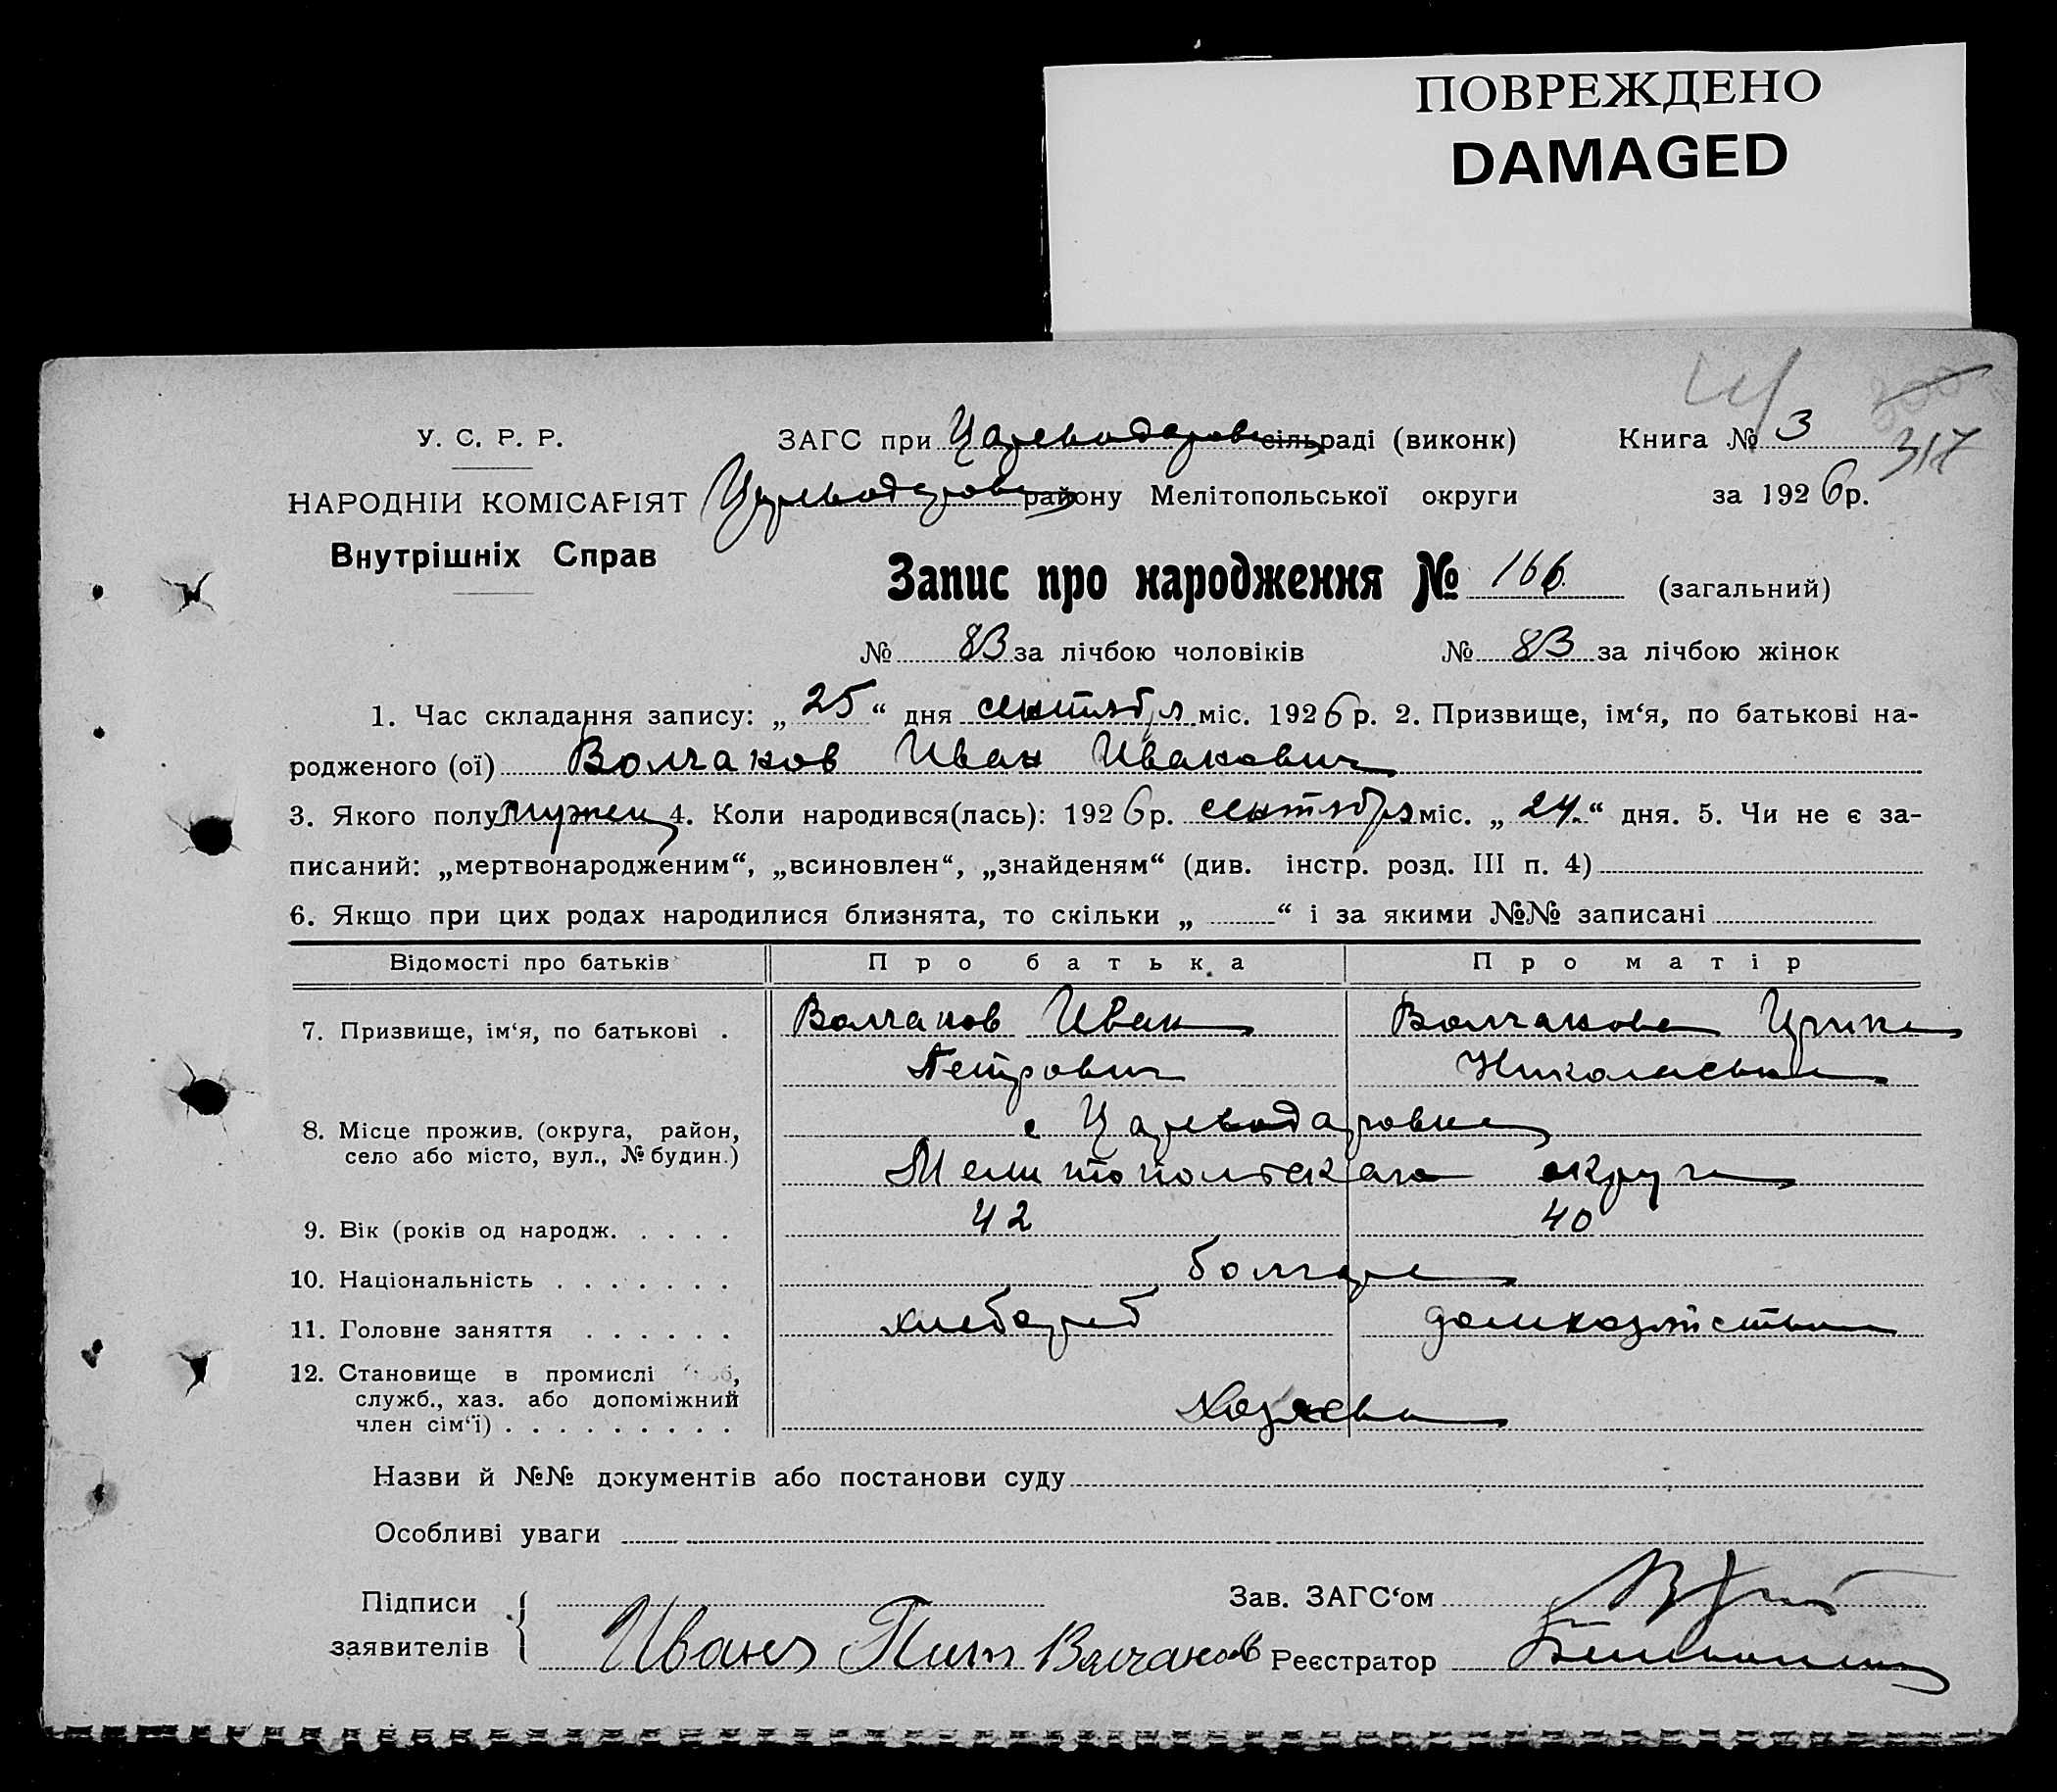 ПОВРЕЖДЕНО
DAMAGED
317
У. С. Р. Р.
НАРОДНІЙ КОМІСАРІЯТ
Внутрішніх Справ
ЗАГС при Цареводаровс сільраді (виконк)
Цареводаровс району Мелітопольської округи
Книга № 3
за 1926 р.
Запис про народження № 166 (загальний)
№ 83 за лічбою чоловіків № 83 за лічбою жінок
1. Час складання запису: „ 25 “ дня сентября міс. 1926 р. 2. Призвище, ім‘я, по батькові на-
родженого (ої) Волчанов Иван Иванович
3. Якого полу мужск 4. Коли народився(лась): 1926 р. сентября міс. „ 24 “ дня. 5. Чи не є за-
писаний: „мертвонародженим“, „всиновлен“, „знайденям“ (див. інстр. розд. III п. 4)
6. Якщо при цих родах народилися близнята, то скільки „ “ і за якими №№ записані
Відомості про батьків Про батька Про матір
7. Призвище, ім‘я, по батькові . Волчанов Иван Волчанова Ирина
Петрович Николаевна
8. Місце прожив. (округа, район, с Цареводаровка
село або місто, вул., № будин.) Мелитопольскаго округа
9. Вік (років од народж. . . . . 42 40
10. Національність . . . . . . . болгаре
11. Головне заняття . . . . . . хлебороб домхозяйство
12. Становище в промислі
служб., хаз. або допоміжний Хозяева
член сім‘ї) . . . . . . . . .
Назви й №№ документів або постанови суду
Особливі уваги
Підписи Зав. ЗАГС‘ом
заявителів Иванъ Пит Валчанов Реєстратор